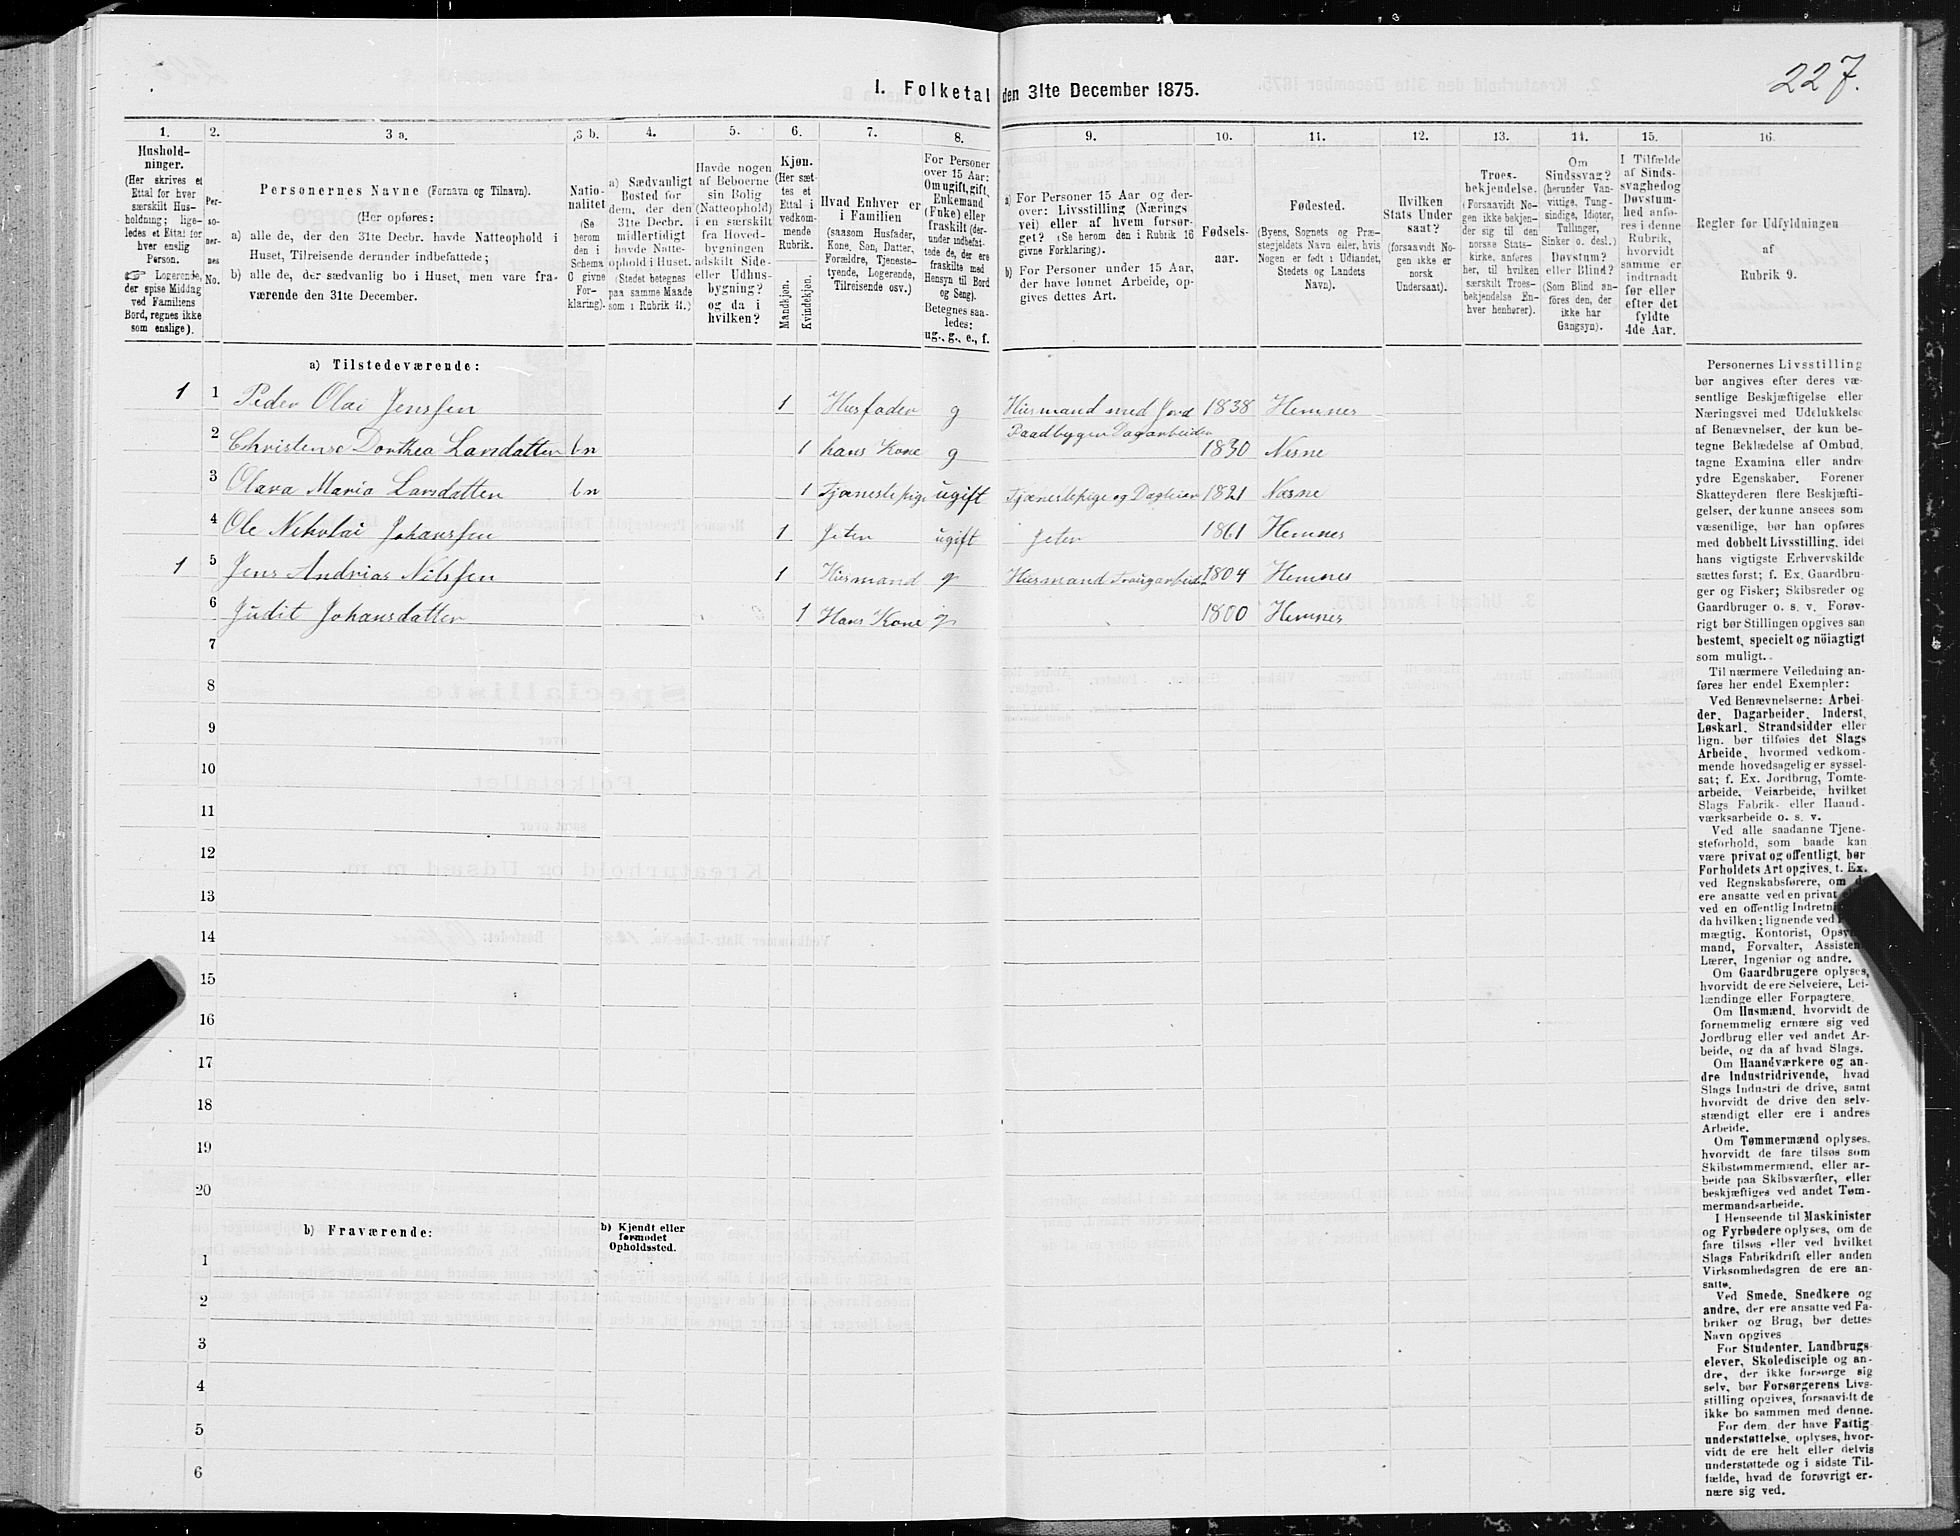 227.
I. Folketal den 31te December 1875.
1. 2. 3 a. 3 b. 4. 5. 6. 7. 8. 9. 10. 11. 12. 13. 14. 15. 16.
Hushold-
ninger.
(Her skrives et
Ettal for hver
særskilt Hus-
holdning; lige-
ledes et Ettal for
hver enslig
Person.
☞ Logerende,
der spise Middag
ved Familiens
Bord, regnes ikke
som enslige).
Per-
so-
ner-
nes
No.
Personernes Navne (Fornavn og Tilnavn).
(Her opføres:
a) alle de, der den 31te Decbr. havde Natteophold i
Huset, Tilreisende derunder indbefattede;
b) alle de, der sædvanlig bo i Huset, men vare fra-
værende den 31te December.
Natio-
nalitet
(Se
herom
den i
Schema
C givne
For-
klaring).
a) Sædvanligt
Bosted for
dem, der den
31te Decbr.
midlertidigt
havde Natte-
ophold i Huset.
(Stedet betegnes
paa samme Maade
som i Rubrik 11.)
Havde nogen
af Beboerne
sin Bolig
(Natteophold)
i en særskilt
fra Hoved-
bygningen
adskilt Side-
eller Udhus-
bygning?
og da i
hvilken?
Kjøn.
(Her sæt-
tes et
Ettal i
vedkom-
mende
Rubrik.
Mandkjøn.
Kvindekjøn.
Hvad Enhver er
i Familien
(saasom Husfader,
Kone, Søn, Datter,
Forældre, Tjeneste-
tyende, Logerende,
Tilreisende osv.)
For Personer
over 15 Aar:
Om ugift, gift,
Enkemand
(Enke) eller
fraskilt (der-
under indbefat-
tede de, der ere
fraskilte med
Hensyn til Bord
og Seng).
Betegnes saa-
ledes:
ug., g., e., f.
a) For Personer 15 Aar og der-
over: Livsstilling (Nærings
vei) eller af hvem forsør-
get? (Se herom den i Rubrik 16
givne Forklaring).
b) For Personer under 15 Aar,
der have lønnet Arbeide, op-
gives dettes Art.
Fødsels-
aar.
Fødested.
(Byens, Sognets og Præ-
stegjeldets Navn eller, hvis
Nogen er født i Udlandet,
Stedets og Landets
Navn).
Hvilken
Stats Under
saat?
(forsaavidt No-
gen ikke er
norsk
Undersaat).
Troes-
bekjendelse.
(Forsaavidt No-
gen ikke bekjen-
der sig til den
norske Stats-
kirke, anføres
her, til hvilken
særskilt Troes-
bekjendelse En-
hver henhører).
Om
Sindssvag?
(herunder Van-
vittige, Tung-
sindige, Idioter,
Tullinger,
Sinker o. desl.)
Døvstum?
eller Blind?
(Som Blind an-
føres den, der
ikke har
Gangsyn).
I Tilfælde
af Sinds-
svaghed og
Døvstum-
hed anfø-
res i denne
Rubrik,
hvorvidt
samme er
indtraadt
før eller
efter det
fyldte
4de Aar.
Regler for Udfyldningen
af
Rubrik 9.
a) Tilstedeværende:
1 1 Peder Olai Jenssen 1 Husfader g Husmand med Jord 1838 Hemnes
Baadbygger Dagarbeider
2 Christense Dorthea Larsdatter bn 1 hans Kone g 1830 Nesne
3 Olava Maria Larsdatter bn 1 Tjenestepige ugift Tjenestepige og 1821 Nesne
4 Ole Nikolai Johanssen 1 Jeter ugift Jeter 1861 Hemnes
1 5 Jens Andrias Nilssen 1 Husmand g Husmand 1804 Hemnes
6 Judit Johansdatter 1 Hans Kone g 1800 Hemnes
7
8
9
10
11
12
13
14
15
16
17
18
19
20
b) Fraværende:
b) Kjendt eller
formodet
Opholdssted.
1
2
3
4
5
6
Personernes Livsstilling
bør angives efter deres væ-
sentlige Beskjæftigelse eller
Næringsvei med Udelukkelse
af Benævnelser, der kun be-
tegne Beklædelse af Ombud,
tagne Examina eller andre
ydre Egenskaber. Forener
Skatteyderen flere Beskjæfti-
gelser, der kunne ansees som
væsentlige, bør han opføres
med dobbelt Livsstilling, idet
hans vigtigste Erhvervskilde
sættes først; f. Ex. Gaardbru-
ger og Fisker; Skibsreder og
Gaardbruger o. s. v. Forøv-
rigt bør Stillingen opgives saa
bestemt, specielt og nöiagtigt
som muligt.
Til nærmere Veiledning an-
føres her endel Exempler:
Ved Benævnelserne: Arbei-
der, Dagarbeider, Inderst,
Løskarl, Strandsidder eller
lign. bør tilføies det Slags
Arbeide, hvormed vedkom-
mende hovedsagelig er syssel-
sat; f. Ex. Jordbrug, Tomte-
arbeide, Veiarbeide, hvilket
Slags Fabrik- eller Haand-
værksarbeide o. s. v.
Ved alle saadanne Tjene-
steforhold, som baade kan
være privat og offentligt, bør
Forholdets Art opgives, t. Ex.
ved Regnskabsførere, om d
ere ansatte ved en privat
ved en offentlig Indretni
da hvilken; lignende ved
mægtig, Kontorist, Opsy
mand, Forvalter, Assisten
Lærer, Ingeniør og andre.
Om Gaardbrugere oplyses,
hvorvidt de ere Selveiere, Lei-
lændinge eller Forpagtere.
Om Husmænd, hvorvidt de
fornemmelig ernære sig ved
Jordbrug eller ved andet Ar-
beide, og da af hvad Slags.
Om Haandværkere og an-
dre Industridrivende, hvad
Slags Industri de drive, samt
hvorvidt de drive den selv-
stændigt eller ere i andres
Arbeide.
Om Tømmermænd oplyses,
hvorvidt de fare tilsøs som
Skibstømmermænd, eller ar-
beide paa Skibsværfter, eller
beskjæftiges ved andet Tøm-
mermandsarbeide.
I Henseende til Maskinister
og Fyrbødere oplyses, om de
fare tilsøs eller ved hvilket
Slags Fabrikdrift eller anden
Virksomhedsgren de ere an-
satte.
Ved Smede, Snedkere og
andre, der ere ansatte ved Fa-
briker og Brug, bør dettes
Navn opgives
For Studenter, Landbrugs-
elever, Skoledisciple og an-
dre, der ikke forsørge sig
selv, bør Forsørgerens Livs-
stilling opgives, forsaavidt de
ikke bo sammen med denne.
For dem, der have Fattig-
understøttelse, oplyses, hvor-
vidt de ere helt eller delvis
understøttede og i sidste Til-
fælde, hvad de forøvrigt er-
nære sig ved.